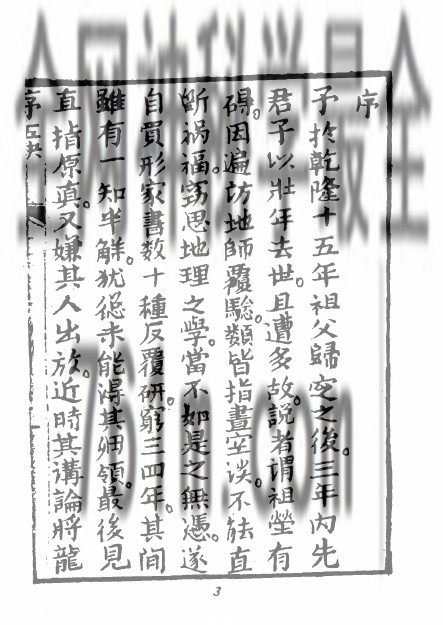 序
予於乾隆十五年祖父歸窆之後。三年內先
君子以壯年去世。且遭多故。說者謂祖塋有
碍。因遍訪地師覆驗。類皆指畫空談。不能直
斷禍福。竊思地理之學。當不如是之無憑。遂
自買形家書数十種反覆研窮。三四年。其間
雖有一知半解。犹從未能得其綱領。最後見
直指原真。又嫌其人出放。近時其講論將龍
序
3